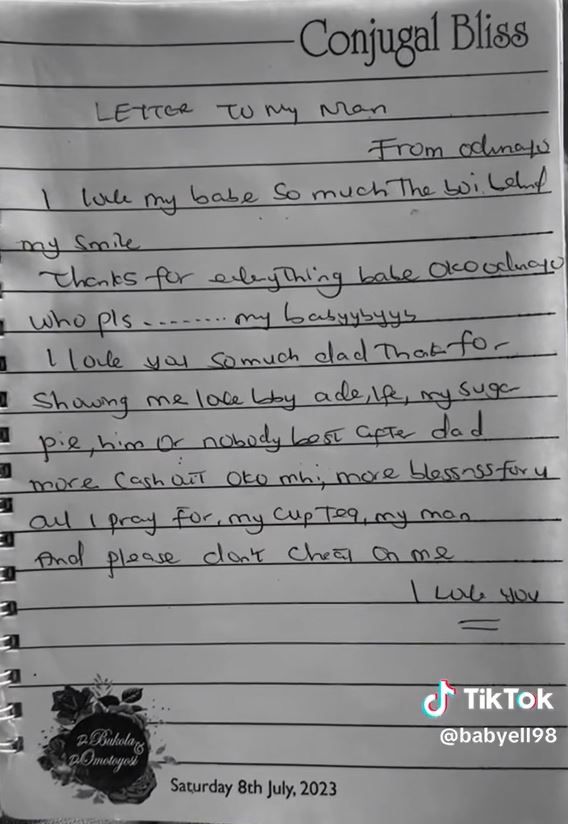 Conjugal Bliss
LETTER TO My Man
From odunayo
I love my babe so much The boi behind
my smile
Thanks for everything babe Oko odunayo
who pls ........ my babyybyyb
I love you so much dad Thank for
Showing me love bby ade, ife, my suga
pie, him or nobody best after dad
more Cash out oko mhi, more blessnss for u
all I pray for, my cup Tea, my man
And please don't cheat on me
I love you
D. Bukola &
D. Omotoyosi
Saturday 8th July, 2023
TikTok
@babyell98